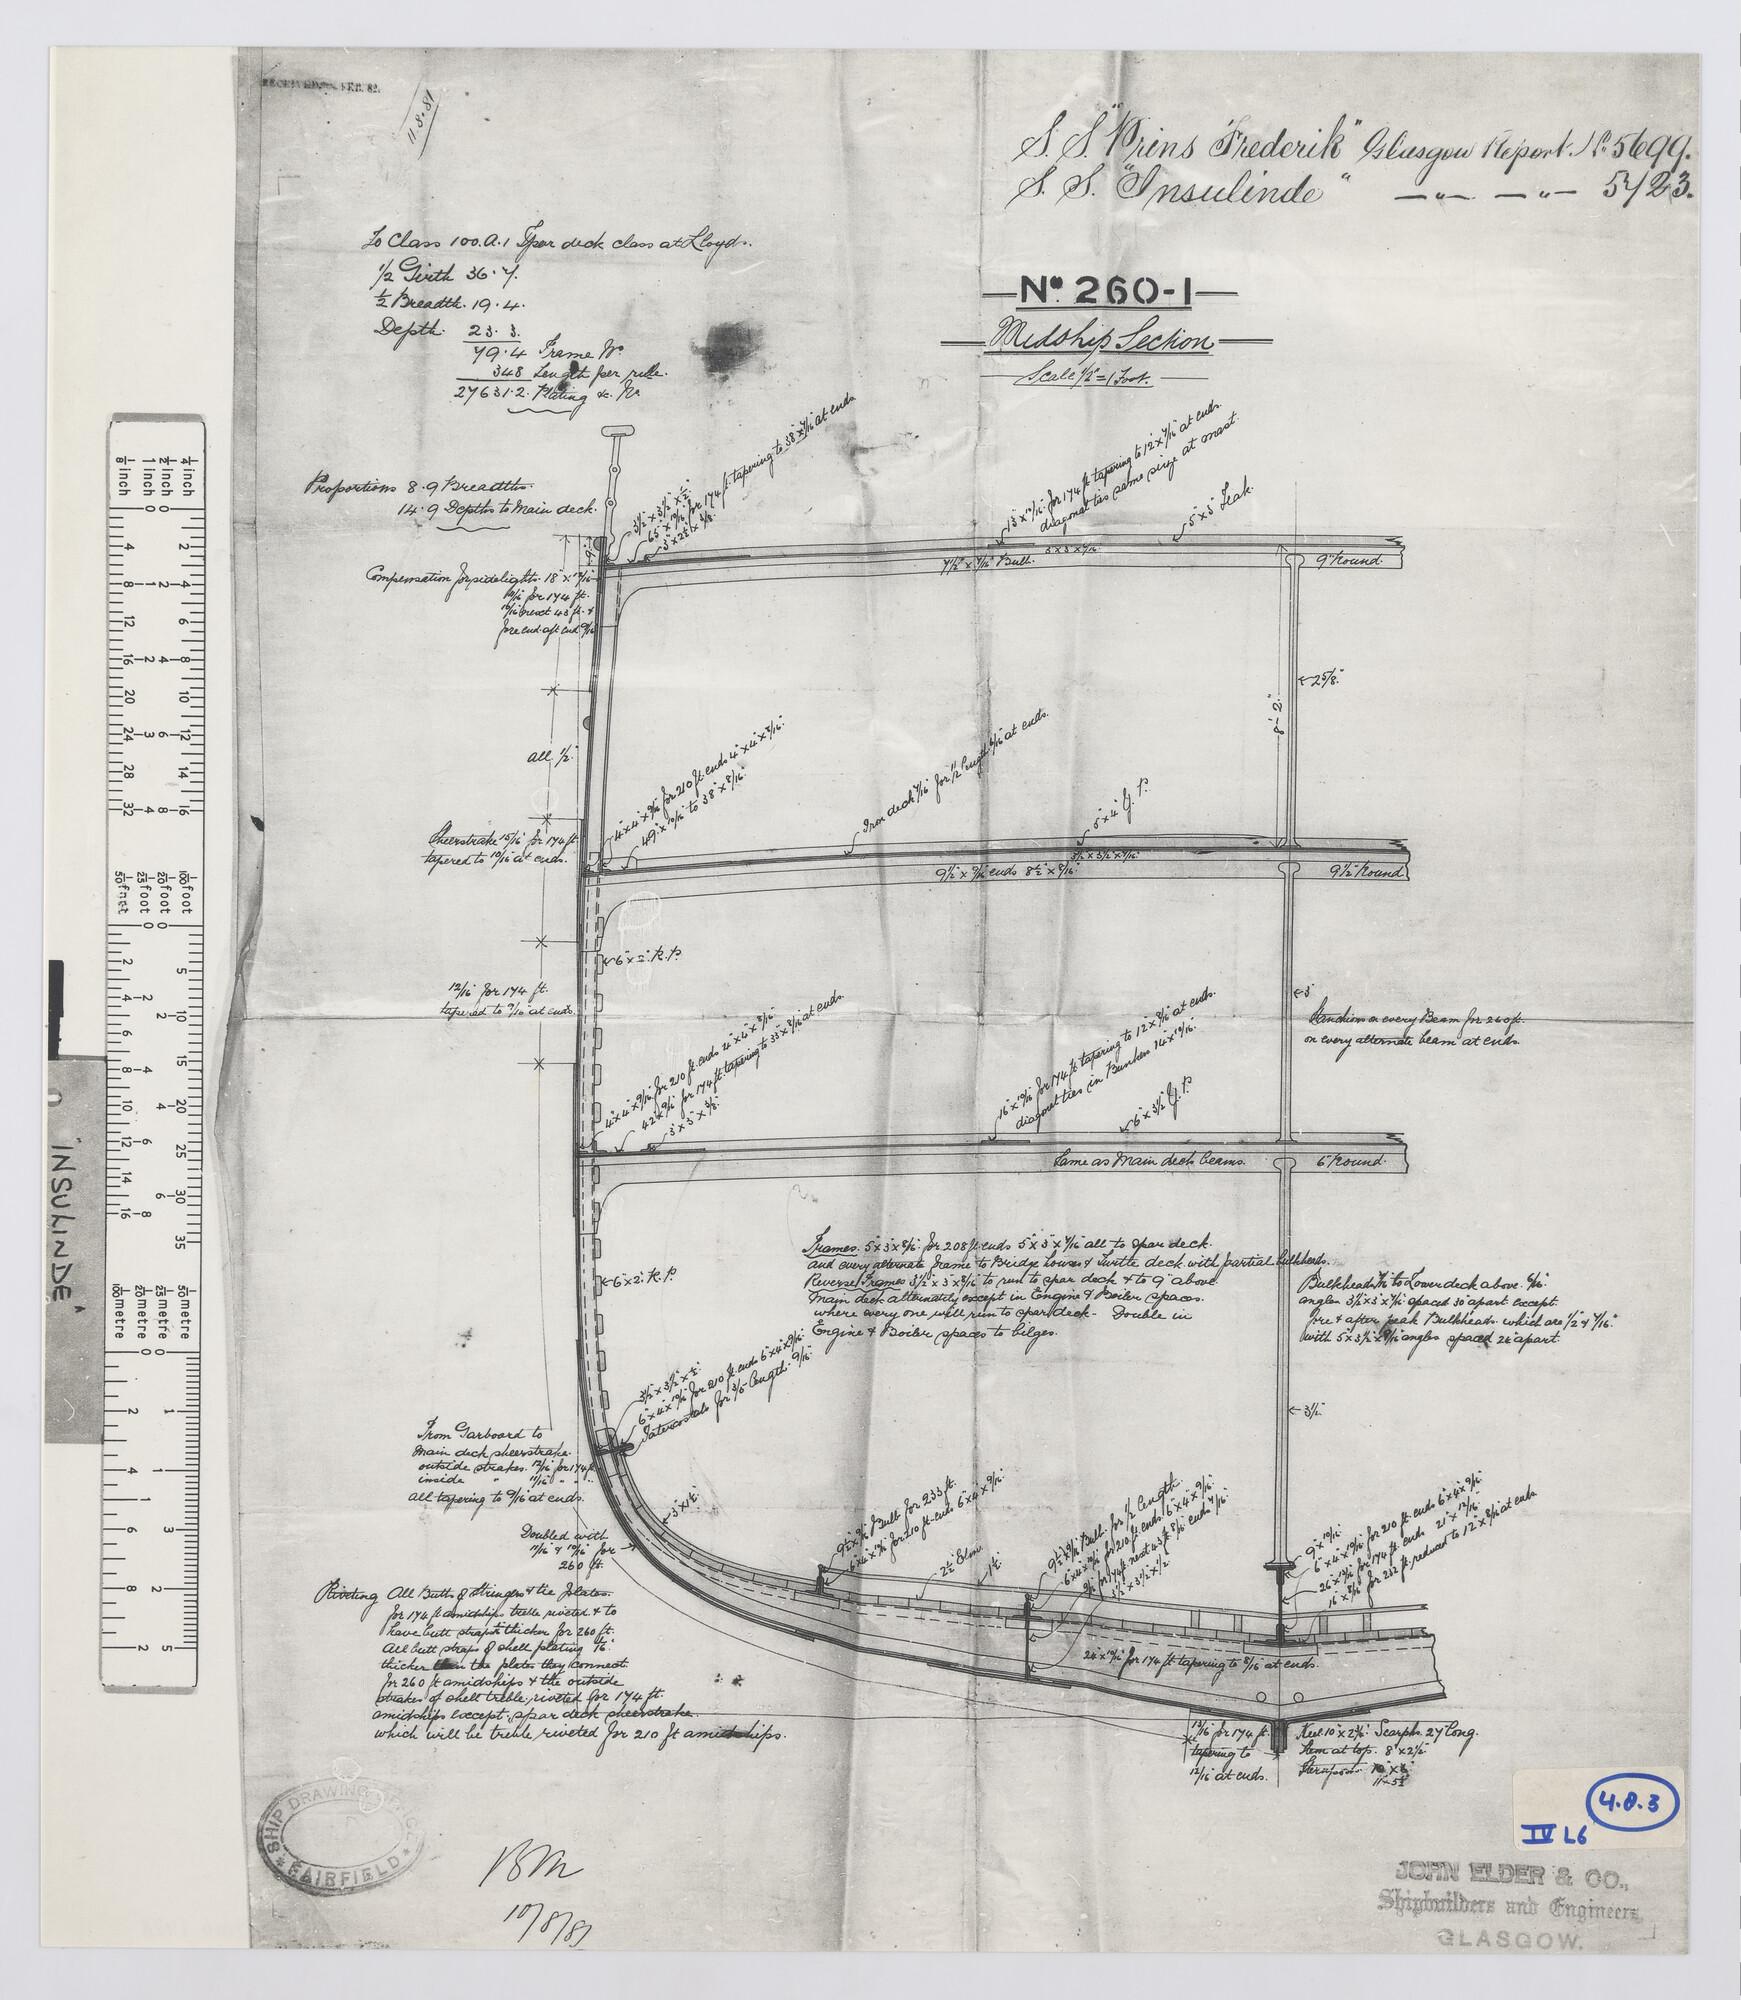 11.8.81
S. S. "Prins Frederik" Glasgow Report. No. 5699.
S. S. "Insulinde" — „ — — „ — 5723.
To Class 100.A.1 Spar deck class at Lloyds.
1/2 Girth 36.7.
1/2 Breadth. 19.4.
Depth. 23.3.
79.4 Frame No.
348 Length per rule.
27631.2. Plating &c. No.
No. 260-1
Midship Section
Scale 1/2" = 1 Foot.
Proportions 8.9 Breadths.
14.9 Depths to Main deck.
3 1/2" x 3 1/2" x 1/2"
for 174 ft. tapering to 38" x 7/16" at ends.
for 174 ft tapering to 12" x 7/16" at ends.
diagonal ties same size at mast.
5" x 3" Teak.
7 1/2" x 7/16" Bulb.
9" Round.
Compensation for sidelights. 18" x
for 174 ft.
2 5/8"
8'-2"
all 1/2"
4" x 4" x 9/16" for 210 ft. ends 4" x 4" x 8/16"
49" x 10/16" to 38" x 8/16"
Iron deck 7/16" for 1/2 Length 6/16" at ends.
5" x 4" Y. P.
Sheerstrake 15/16" for 174 ft.
tapered to 10/16" at ends.
9 1/2" x 9/16" ends 8 1/2" x 8/16"
9 1/2" Round.
12/16" for 174 ft.
tapered to 9/16" at ends.
3"
Stanchions on every Beam for 260 ft.
on every alternate beam at ends.
4" x 4" x 9/16" for 210 ft. ends 4" x 4" x 8/16"
42" x 9/16" for 174 ft. tapering to 33" x 8/16" at ends.
3" x 3" x 3/8"
16" x 10/16" for 174 ft tapering to 12" x 8/16" at ends.
diagonal ties in Bunkers 14" x 10/16"
6" x 3 1/2" Y. P.
Same as Main deck beams.
6" Round.
6" x 2" R. P.
Frames. 5" x 3" x 8/16" for 208 ft. ends 5" x 3" x 7/16" all to Spar deck.
and every alternate frame to Bridge house & Turtle deck with partial bulkheads.
Reverse Frames 3 1/2" x 3" x 8/16" to run to spar deck & to 9" above
Main deck alternately except in Engine & Boiler spaces.
where every one will run to spar deck - Double in
Engine & Boiler spaces to bilges.
Bulkheads 7/16" to Lower deck above. 6/16"
angles 3 1/2" x 3" x 7/16" spaced 30" apart except
fore & after peak Bulkheads. which are 1/2" & 7/16"
with 5" x 3 1/2" x 8/16" angles spaced 24" apart.
3 1/2" x 3 1/2" x 1/2"
6" x 4" x 10/16" for 210 ft. ends 6" x 4" x 9/16"
Intercostals for 3/5 Length. 9/16"
3 1/2"
From Garboard to
Main deck sheerstrake.
outside strakes. 12/16" for 174 ft
inside " 11/16" " "
all tapering to 9/16" at ends.
Doubled with
11/16" & 10/16" for
260 ft.
9 1/2" x 9/16" Bulb for 233 ft.
6" x 4" x 10/16" for 210 ft. ends 6" x 4" x 9/16"
2 1/2" Elm
9 1/2" x 9/16" Bulb. for 1/2 Length.
6" x 4" x 10/16" for 210 ft. ends 6" x 4" x 9/16"
3 1/2" x 3 1/2" x 1/2"
9" x 10/16"
6" x 4" x 10/16" for 210 ft. ends 6" x 4" x 9/16"
for 174 ft. ends 21" x 12/16"
for 232 ft. reduced to 12" x 8/16" at ends
24" x 10/16" for 174 ft tapering to 8/16" at ends.
Riveting All Butts of Stringers & tie plates.
for 174 ft amidships treble riveted & to
have butt straps thicker for 260 ft.
All butt straps of shell plating 1/16"
thicker than the plates they connect.
for 260 ft amidships & the outside
strakes of shell treble riveted for 174 ft.
amidships except spar deck sheerstrake.
which will be treble riveted for 210 ft amidships.
13/16" for 174 ft.
tapering to
12/16" at ends.
Keel 10" x 2 5/8" Scarphs. 27" long.
Stem at top. 8" x 2 1/2"
Sternpost.
SHIP DRAWING OFFICE
FAIRFIELD
BM
10/8/81
4.8.3
IV L6
JOHN ELDER & CO.,
Shipbuilders and Engineers,
GLASGOW.
"INSULINDE"
1/8 inch
1 inch
1/2 inch
1/4 inch
50 feet
25 foot
20 foot
100 foot
100 metre
20 metre
25 metre
50 metre